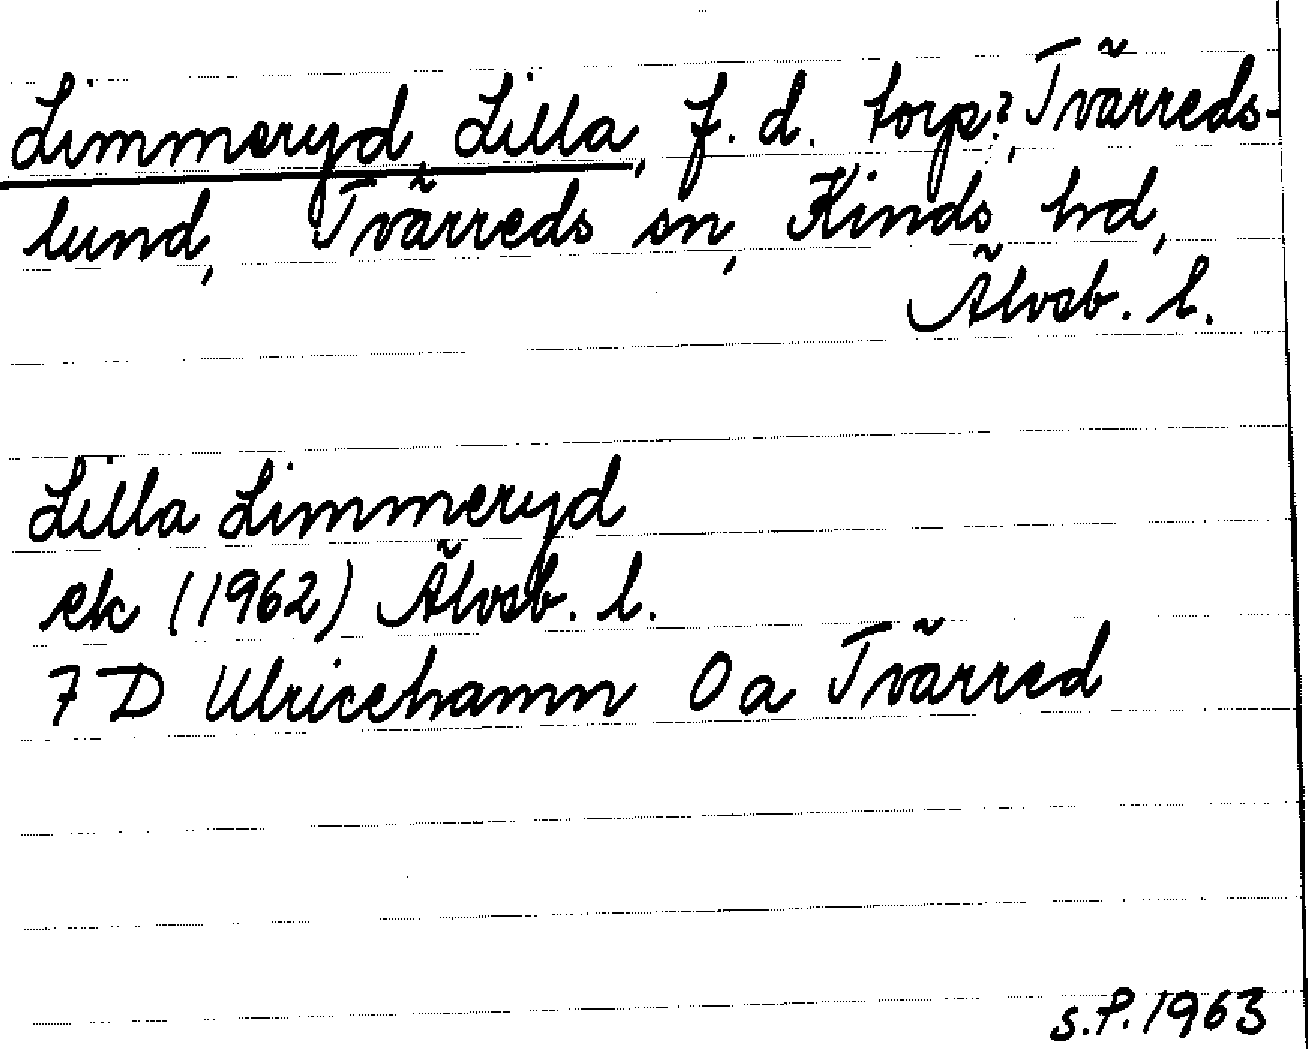 Limmeryd, Lilla, f. d. torp?, Tvärreds-
lund, Tvärreds sn, Kinds hd,
Älvsb. l.
Lilla Limmeryd
ek (1962) Älvsb. l.
7 D Ulricehamn 0 a Tvärred
S.P. 1963